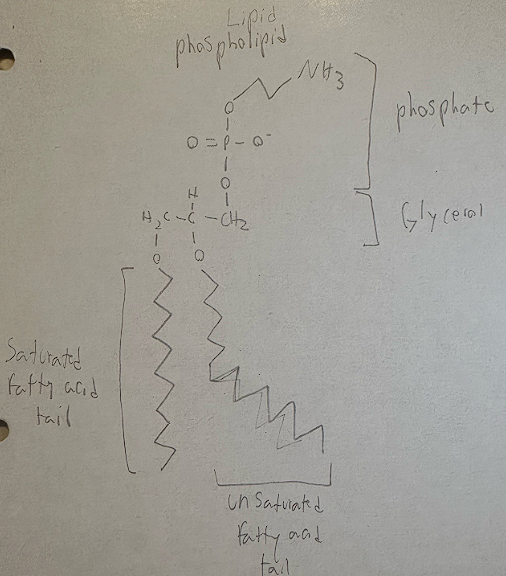 Lipid
phospholipid
NH3
O
phosphate
O=P-O-
O
Glycerol
H
H2C-C-CH2
O O
Saturated
fatty acid
tail
unsaturated
fatty acid
tail